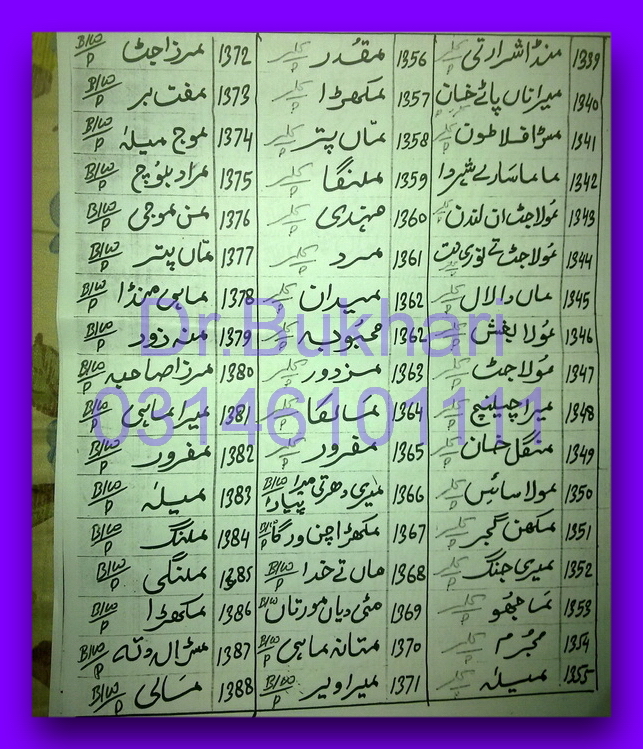 1339 منڈا شرارتی کلر P
1340 میراناں پاٹے خان کلر
1341 مسڑا فلاطون کلر P
1342 ماما سارے شہر دا
1343 مولا جٹ ان لندن کلر
1344 مولا جٹ تے نوری نت کلر
1345 ماں دا لال کلر P
1346 مولا بخش کلر P
1347 مولا جٹ کلر P
1348 میرا چیلنج کلر P
1349 منگل خان کلر P
1350 مولا سائیں کلر P
1351 مکھن گجر کلر P
1352 میری جنگ کلر P
1353 ماجھو کلر P
1354 مجرم کلر P
1355 میلہ کلر P
1356 مقدر کلر P
1357 مکھڑا کلر P
1358 ماں پتر کلر P
1359 ملنگا کلر P
1360 مہندی کلر P
1361 مرد کلر P
1362 میدان کلر P
1362 محبوبہ کلر P
1363 مزدور کلر P
1364 کلر P
1365 مفرور کلر P
1366 میری دھرتی میرا پیار B/W P
1367 مکھڑا چن ورگا B/W P
1368 ماں تے خدا B/W P
1369 مٹی دیاں مورتاں B/W
1370 مستانہ ماہی B/W P
1371 میرا ویر B/W P
1372 مرزا جٹ B/W P
1373 مفت بر B/W P
1374 موج میلہ B/W P
1375 مراد بلوچ B/W P
1376 من موجی B/W P
1377 ماں پتر B/W P
1378 ماہی منڈا B/W P
1379 منہ زور B/W P
1380 مرزا صاحبہ B/W P
1381 میرا ماہی B/W P
1382 مفرور B/W P
1383 میلہ B/W P
1384 ملنگ B/W P
1385 ملنگی B/W P
1386 مکھڑا B/W P
1387 مسڑال دتہ B/W P
1388 B/W P
Dr.Bukhari
03146101111